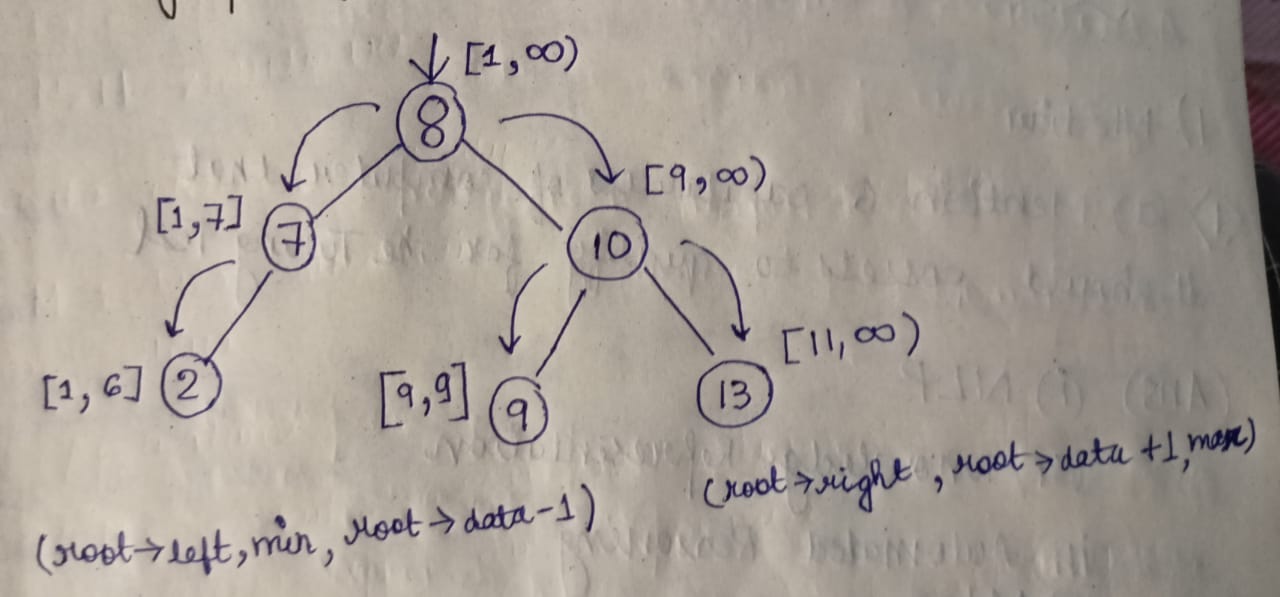 [1,∞)
8
[9,∞)
[1,7]
7
10
[11,∞)
[1,6]
2
[9,9]
9
13
(root→right, root→data+1, max)
(root→left, min, root→data-1)